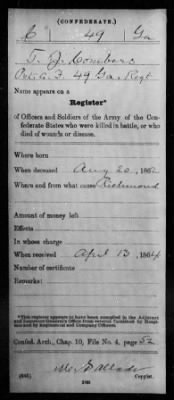 (CONFEDERATE.)
C 49 Ga
T. J. Combars
Pvt. Co. F. 49 Ga. Regt
Name appears on a
Register*
of Officers and Soldiers of the Army of the Con-
federate States who were killed in battle, or who
died of wounds or disease.
Where born
When deceased Aug 20, 1862
Where and from what cause Richmond
Amount of money left
Effects
In whose charge
When received April 13, 1864
Number of certificate
Remarks:
*This register appears to have been compiled in the Adjutant
and Inspector General's Office from returns furnished by Hosp-
itals by Regimental and Company Officers.
Confed. Arch., Chap. 10, File No. 4, page 52
Copyist.